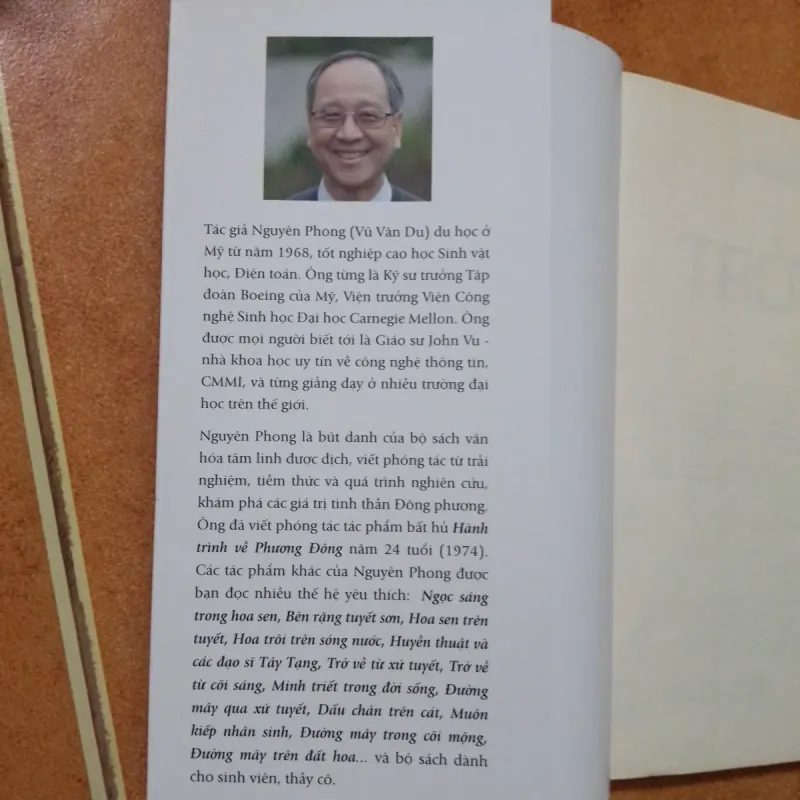 Tác giả Nguyên Phong (Vũ Văn Du) du học ở
Mỹ từ năm 1968, tốt nghiệp cao học Sinh vật
học, Điện toán. Ông từng là Kỹ sư trưởng Tập
đoàn Boeing của Mỹ, Viện trưởng Viện Công
nghệ Sinh học Đại học Carnegie Mellon. Ông
được mọi người biết tới là Giáo sư John Vu -
nhà khoa học uy tín về công nghệ thông tin,
CMMI, và từng giảng dạy ở nhiều trường đại
học trên thế giới.
Nguyên Phong là bút danh của bộ sách văn
hóa tâm linh được dịch, viết phóng tác từ trải
nghiệm, tiềm thức và quá trình nghiên cứu,
khám phá các giá trị tinh thần Đông phương.
Ông đã viết phóng tác tác phẩm bất hủ Hành
trình về Phương Đông năm 24 tuổi (1974).
Các tác phẩm khác của Nguyên Phong được
bạn đọc nhiều thế hệ yêu thích: Ngọc sáng
trong hoa sen, Bên rặng tuyết sơn, Hoa sen trên
tuyết, Hoa trôi trên sóng nước, Huyền thuật và
các đạo sĩ Tây Tạng, Trở về từ xứ tuyết, Trở về
từ cõi sáng, Minh triết trong đời sống, Đường
mây qua xứ tuyết, Dấu chân trên cát, Muôn
kiếp nhân sinh, Đường mây trong cõi mộng,
Đường mây trên đất hoa... và bộ sách dành
cho sinh viên, thầy cô.